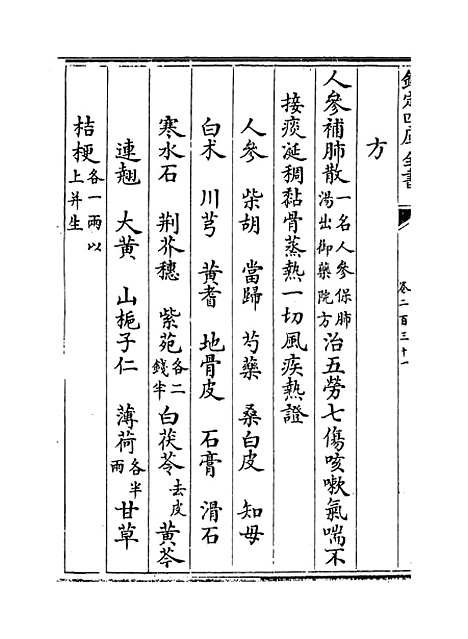 欽定四庫全書
卷二百三十一
方
人參補肺散一名人參保肺湯出御藥院方治五勞七傷咳嗽氣喘不
接痰涎稠黏骨蒸熱一切風疾熱證
人參 柴胡 當歸 芍藥 桑白皮 知母
白术 川芎 黃耆 地骨皮 石膏 滑石
寒水石 荆芥穗 紫菀各二錢半 白茯苓去皮 黃芩
連翹 大黃 山梔子仁 薄荷各半兩 甘草
桔梗各一兩以上并生